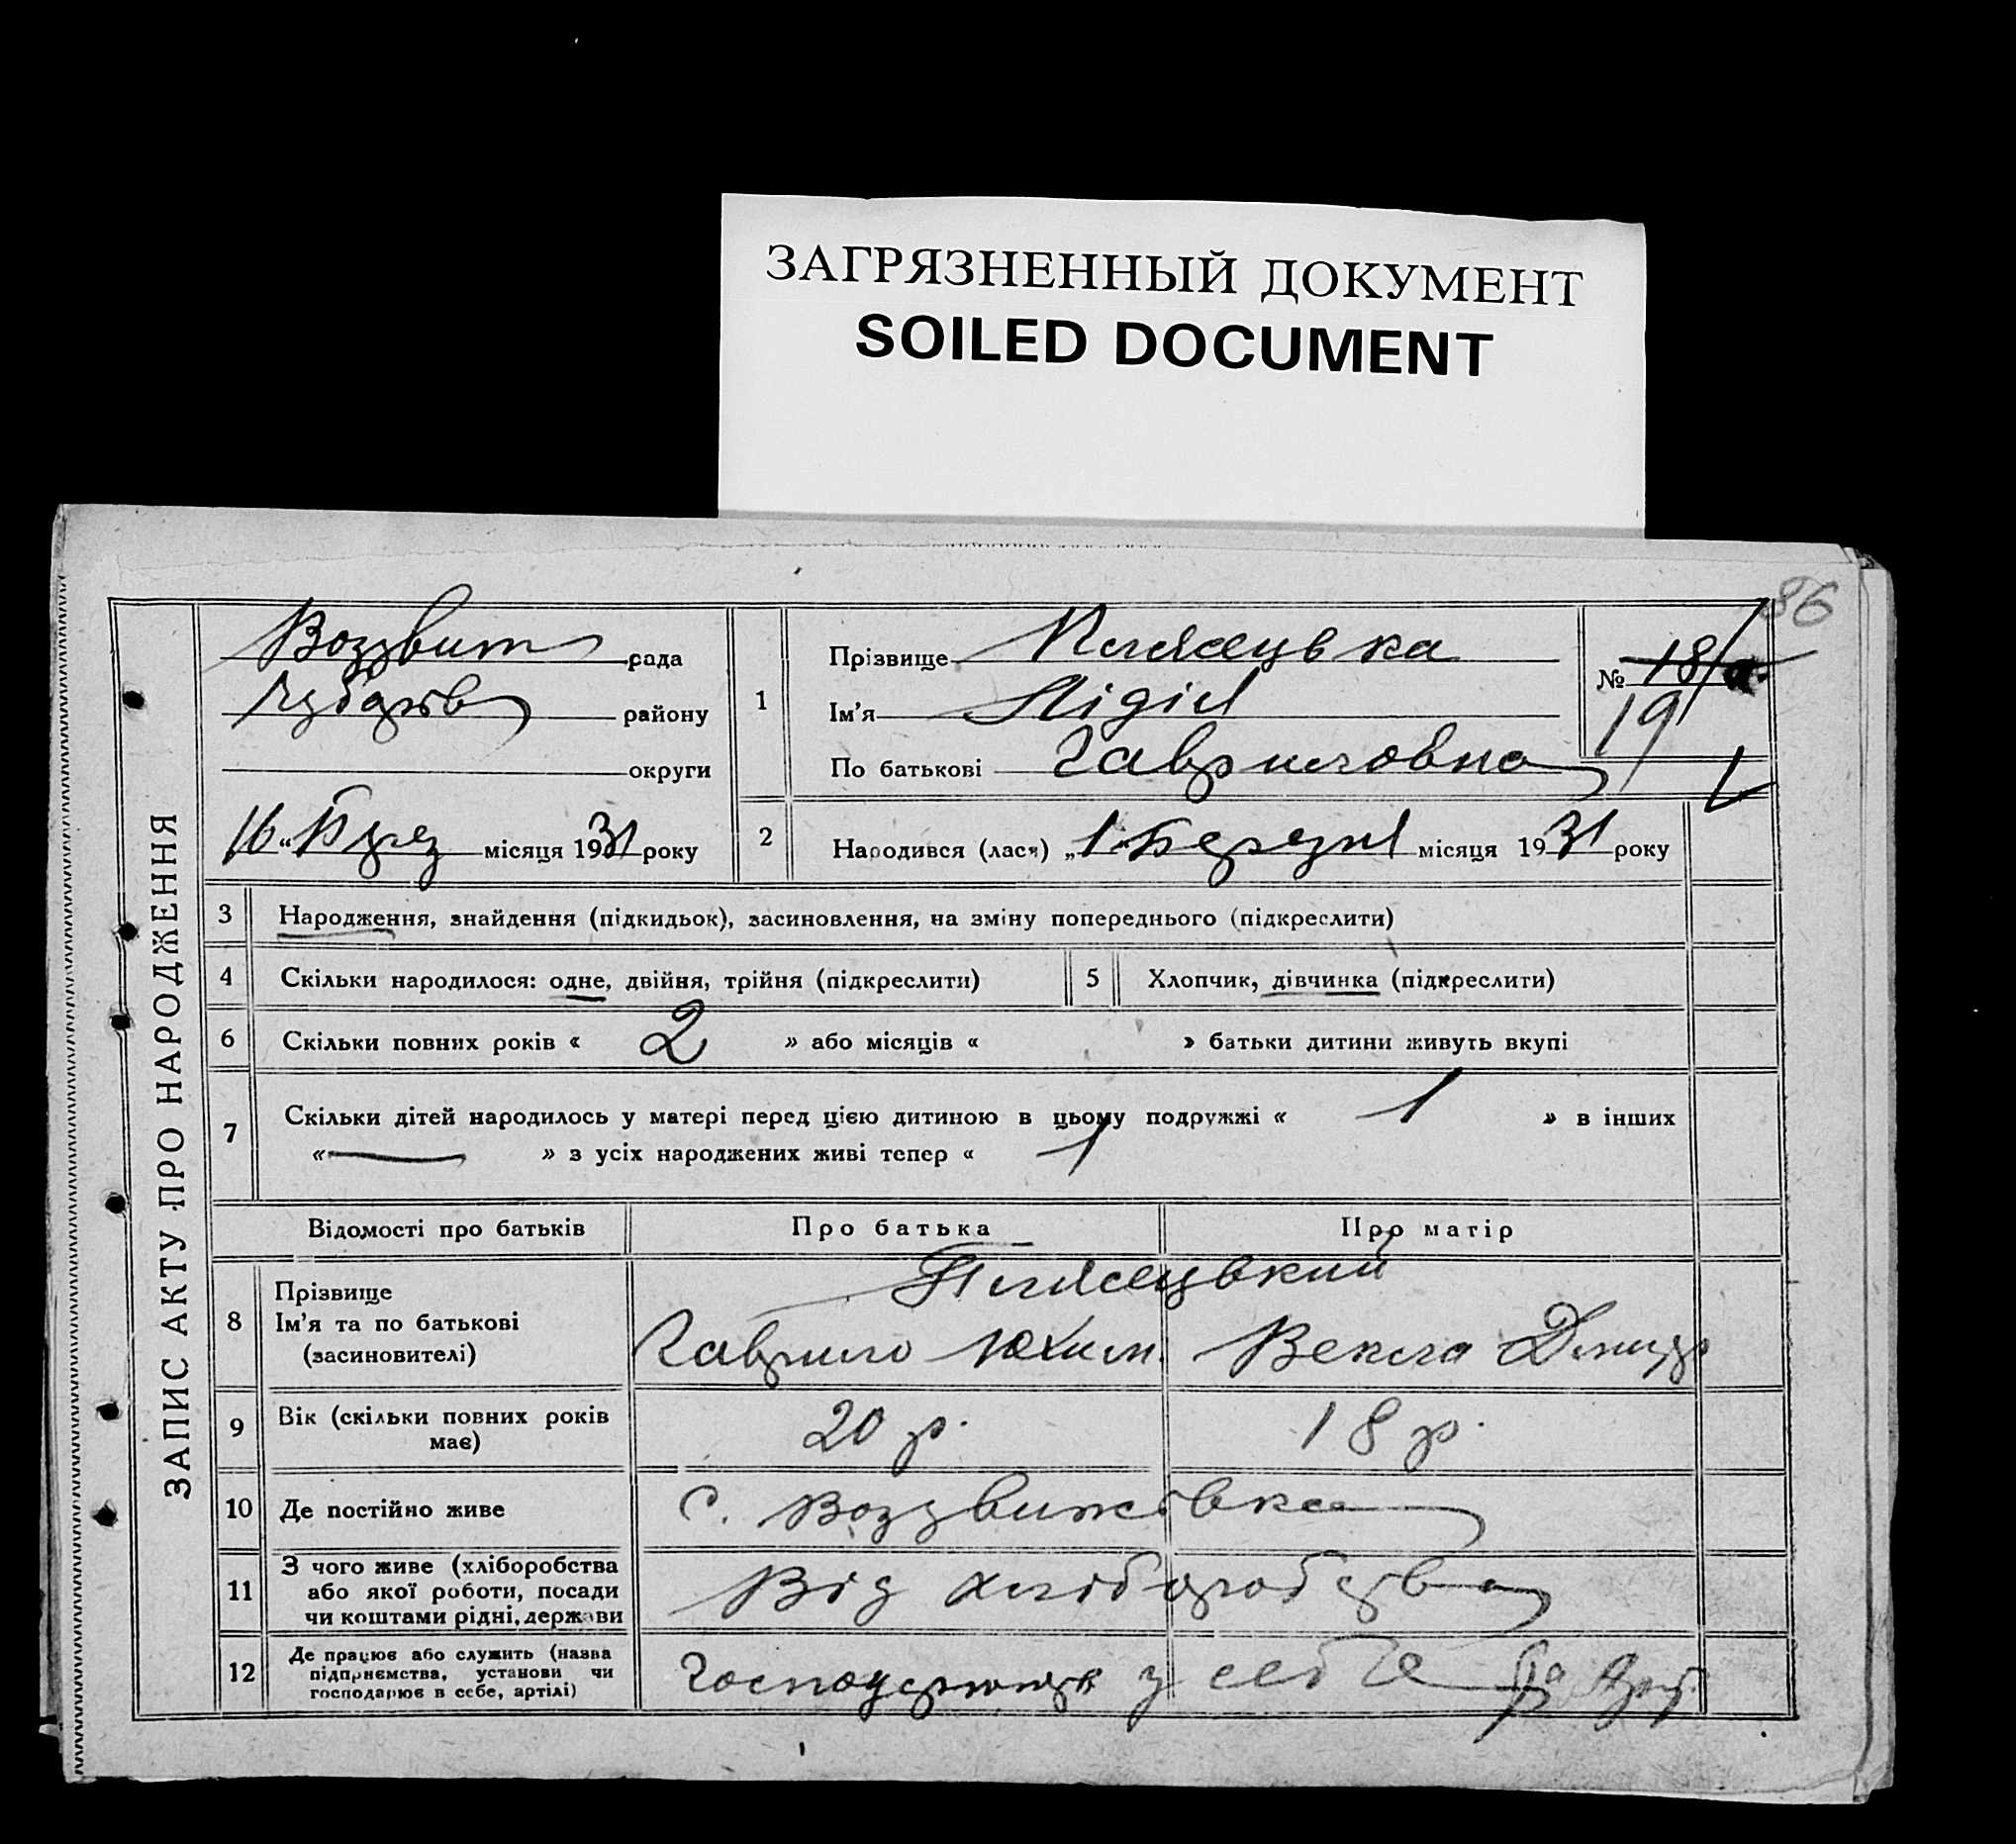 ЗАГРЯЗНЕННЫЙ ДОКУМЕНТ
SOILED DOCUMENT
86
ЗАПИС АКТУ ПРО НАРОДЖЕННЯ
Воздвит рада
району
округи
16 „ Берез місяця 1931 року
1
Прізвище
Ім'я Лідія
По батькові Гавриловна
№ 18
19
2 Народився (лася) „1 Березня місяця 1931 року
3 Народження, знайдення (підкидьок), засиновлення, на зміну попереднього (підкреслити)
4 Скільки народилося: одне, двійня, трійня (підкреслити) 5 Хлопчик, дівчинка (підкреслити)
6 Скільки повних років « 2 » або місяців « » батьки дитини живуть вкупі
7 Скільки дітей народилось у матері перед цією дитиною в цьому подружжі « 1 » в інших
« — » з усіх народжених живі тепер « 1
Відомості про батьків Про батька Про матір
8 Прізвище
Ім'я та по батькові
(засиновителі)
Гаврило Юхим. Векла
9 Вік (скільки повних років
має)
20 р. 18 р.
10 Де постійно живе с. Воздвижівка
11 З чого живе (хліборобства
або якої роботи, посади
чи коштами рідні, держави
Від хліборобства
12 Де працює або служить (назва
підприємства, установи чи
господарює в себе, артілі)
у себе